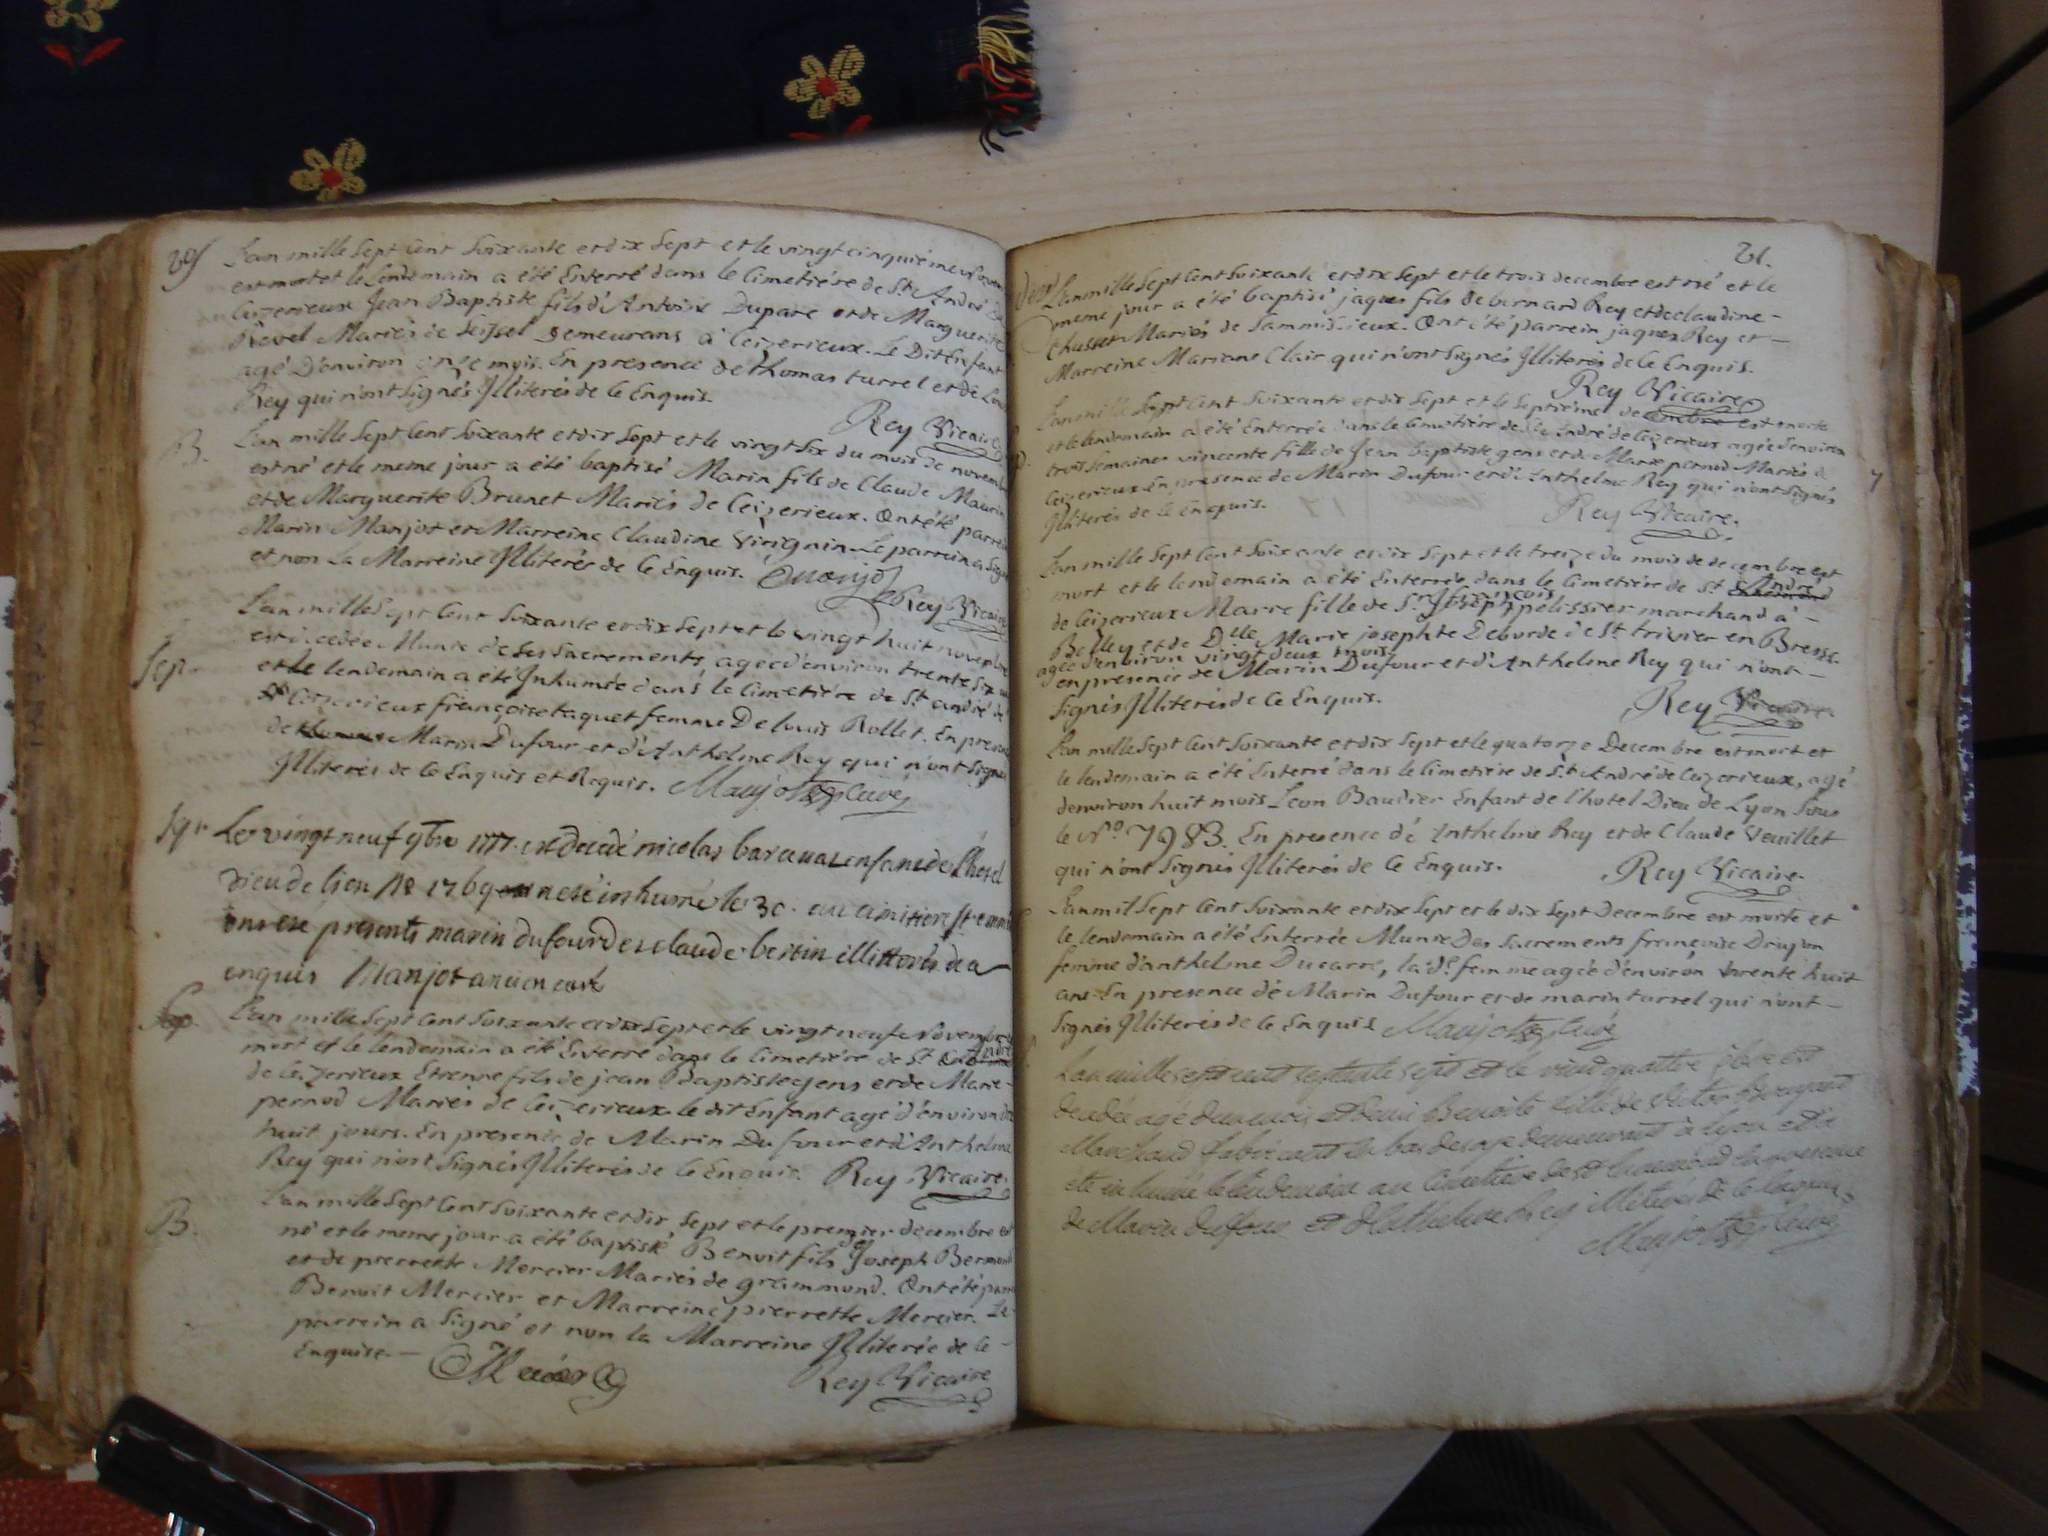 20
L'an mille Sept Cent Soixante et dix Sept et le vingt cinquieme Novem
est mort et le lendemain a été Enterré dans le Cimetiére de St. André de
Ceizerieux Jean Baptiste fils d'Antoine Duparc et de Marguerite
Revel Mariés de Seissel Demeurans à Ceizerieux. Le Dit Enfant
agé D'environ onze mois. En presence de thomas turrel et de Loui
Rey qui n'ont Signés Illiterés de ce Enquis.
Rey Vicaire
B.
L'an mille Sept Cent Soixante et dix Sept et le vingt Six du mois de novembre
est né et le meme jour a été baptisé Marin fils de Claude Maurin
et de Marguerite Brunet Mariés de Ceizerieux. Ont été parrein
Marin Manjot et Marreine Claudine Virignin Le parrein a Signé
et non La Marreine Illiterés de ce Enquis. Manjot
Rey Vicaire
Sep.
L'an mille Sept Cent Soixante et dix Sept et le vingt huit novembre
est decedée Munie de Ses Sacrements, agée d'environ trente six
et le lendemain a été Inhumée dans le Cimetiére de St. André de
Ceizerieux françoise taquet femme De louis Rollet. En presence
de Marin Dufour et d'Anthelme Rey qui n'ont Signés
Illiterés de ce Enquis et Requis. Manjot curé
Le vingt neuf 9bre 1777. est decedé nicolas enfant de l'hotel
Dieu de lion No 1769 inhumé le 30. au cimitiere St
presents marin dufour et claude bertin illitterés de ce
enquis Manjot ancien curé
Sep.
L'an mille Sept Cent Soixante et dix Sept et le vingt neuf Novembre
mort et le lendemain a été Enterré dans le Cimetiére de St. André
de Ceizerieux Etienne fils de jean Baptiste gens et de Marie
pernod Mariés de Ceizerieux. le dit Enfant agé d'environ
huit jours. En presence de Marin Dufour et d'Anthelme
Rey qui n'ont Signés Illiterés de ce Enquis. Rey Vicaire.
B.
L'an mille Sept Cent Soixante et dix Sept et le premier decembre est
né et le meme jour a été baptisé Benoit fils de Joseph Bermond
et de pierrette Mercier Mariés de grammond. Ont été parrein
Benoit Mercier et Marreine pierrette Mercier. Le
parrein a Signé et non la Marreine Illiterée de ce
Enquise. — Mercier
Rey Vicaire
21.
L'an mille Sept Cent Soixante et dix Sept et le trois decembre est né et le
meme jour a été baptisé jaques fils de bernard Rey et de claudine
Chusset Mariés de Sammissieux. Ont été parrein jaques Rey et
Marreine Mariane Clair qui n'ont Signés Illiterés de ce Enquis.
Rey Vicaire
L'an mille Sept Cent Soixante et dix Sept et le Septiéme decembre est morte
et le lendemain a été Enterrée dans le Cimetiére de St. André de Ceizerieux agée d'environ
trois Semaines vincente fille de Jean baptiste gens et de Marie pernod Mariés de
Ceizerieux En presence de Marin Dufour et d'Anthelme Rey qui n'ont Signés
Illiterés de ce Enquis.
Rey Vicaire.
L'an mille Sept Cent Soixante et dix Sept et le treize du mois de decembre est
mort et le lendemain a été Enterrée dans le Cimetiére de St. André
de Ceizerieux Marie fille de Sr. Joseph françois pelissier marchand à
Belley et de Dlle Marie josephte Deborde de St. trivier en Bresse.
agée d'environ vingt deux mois
en presence de Marin Dufour et d'Anthelme Rey qui n'ont
Signés Illiterés de ce Enquis.
Rey Vicaire.
L'an mille Sept Cent Soixante et dix Sept et le quatorze Decembre est mort et
le lendemain a été Enterré dans le Cimetiére de St. André de Ceizerieux, agé
d'environ huit mois Leon Baudier Enfant de l'hotel Dieu de Lyon Sous
le No. 7983. En presence d'Anthelme Rey et de Claude Veuillet
qui n'ont Signés Illiterés de ce Enquis.
Rey Vicaire.
L'an mil Sept Cent Soixante et dix Sept et le dix Sept Decembre est morte et
le lendemain a été Enterrée Munie Des Sacrements françoise Drujon
femme d'anthelme Ducarre, la de. femme agée d'environ trente huit
ans. En presence de Marin Dufour et de marin turrel qui n'ont
Signés Illiterés de ce Enquis Manjot curé
L'an mille sept cent septante sept et le vingt quattre Xbre est
decedée agée d'un mois et demi Benoite fille de Victor
Marchand fabricant en bas de soye demeurant à lyon et a
été inhumée le lendemain au Cimetiere de St en presence
de Marin dufour et d'Anthelme Rey illiterés de ce Enquis.
Manjot curé